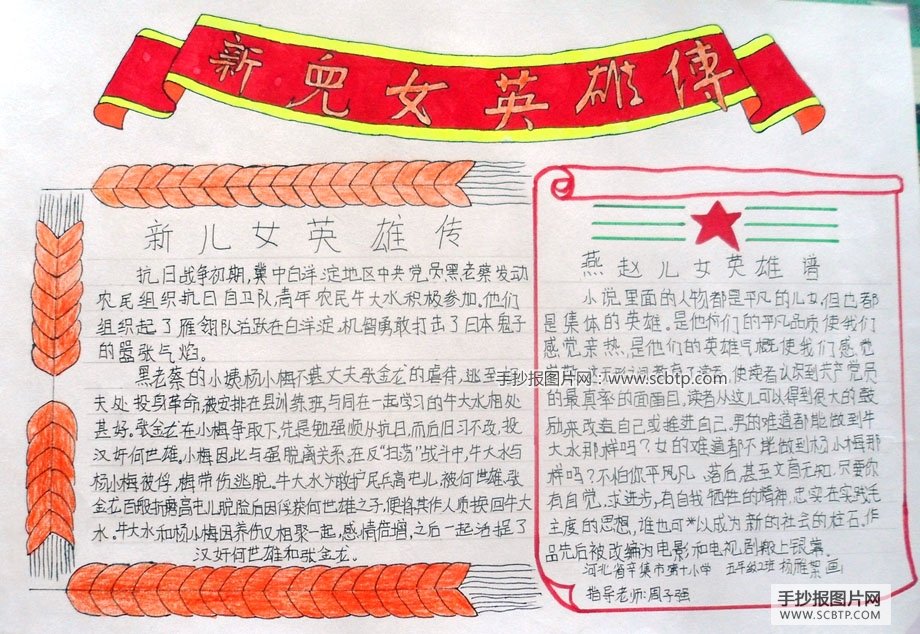 新兒女英雄傳
新儿女英雄传
抗日战争初期,冀中白洋淀地区中共党员黑老蔡发动
农民组织抗日自卫队,青年农民牛大水积极参加。他们
组织起了雁翎队活跃在白洋淀,机智勇敢打击了日本鬼子
的嚣张气焰。
黑老蔡的小姨杨小梅不甚丈夫张金龙的虐待,逃至
夫处投身革命,被安排在县训练班,与同在一起学习的牛大水相处
甚好。张金龙在小梅争取下,先是勉强顺从抗日,而后旧习不改,投
汉奸何世雄。小梅因此与其脱离关系。在反“扫荡”战斗中,牛大水与
杨小梅被俘,梅带伤逃脱。牛大水为救护民兵高屯儿,被何世雄、张
金龙百般折磨,高屯儿脱险后因俘获何世雄之子,便将其作人质换回牛大
水。牛大水和杨小梅因养伤又相聚一起,感情倍增,之后一起活捉了
汉奸何世雄和张金龙。
燕赵儿女英雄谱
小说里面的人物都是平凡的儿女,但也都
是集体的英雄。是他们的平凡品质使我们
感觉亲热,是他们的英雄气概使我们感觉
使读者认识到共产党员
的最真率的面面目,读者从这儿可以得到很大的鼓
励来改造自己或推进自己.男的难道都能做到牛
大水那样吗?女的难道都不能做到杨小梅那
样吗?不怕你平凡、落后,甚至文盲无知,只要你
有自觉,求进步,有自我牺牲的精神,忠实在实践毛
主度的思想,谁也可以成为新的社会的柱石.作
品先后被改编为电影和电视剧搬上银幕。
河北省辛集市第十小学 五年级2班 杨雅 画
指导老师:周子强
手抄报图片网:www.scbtp.com
手抄报图片网
WWW.SCBTP.COM